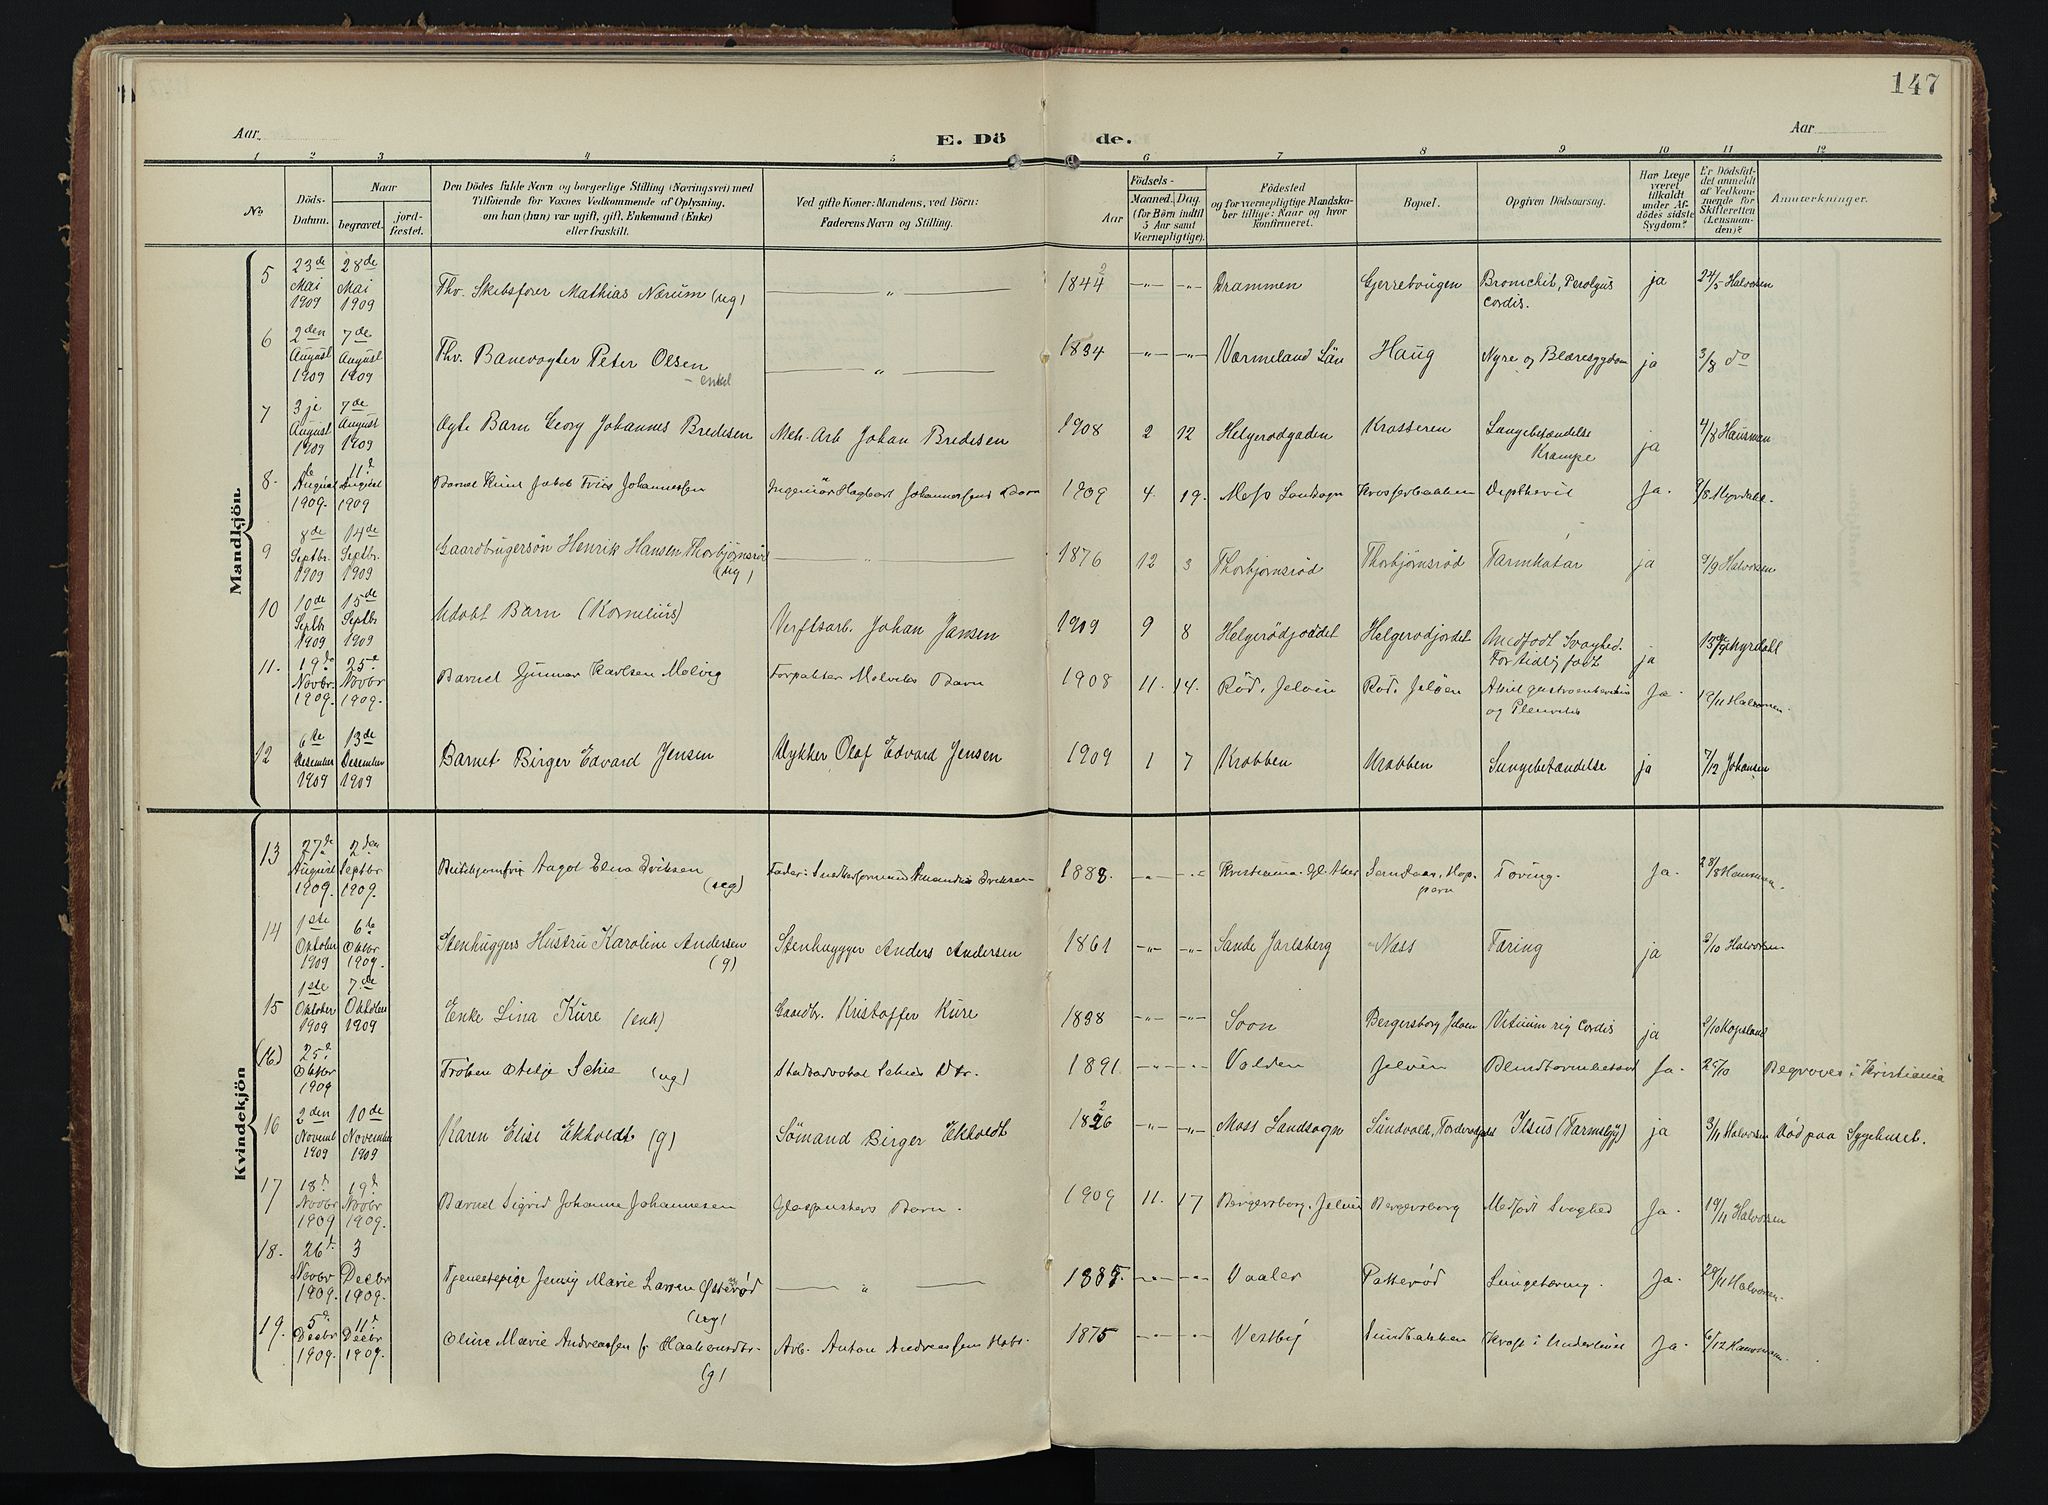 147
Aar
E. Dö de.
Aar
1 2 3 4 5 6 7 8 9 10 11 12
No.
Döds-Datum.
Naar
begravet.
jord-fæstet.
Den Dödes fulde Navn og borgerlige Stilling (Næringsvei) med
Tilföiende for Voxnes Vedkommende af Oplysning,
om han (hun) var ugift, gift, Enkemand (Enke)
eller fraskilt.
Ved gifte Koner: Mandens, ved Börn:
Faderens Navn og Stilling.
Födsels-
Aar
Maaned. Dag.
(for Börn indtil
5 Aar samt
Værnepligtige).
Födested
og for værnepligtige Mandska-
ber tillige: Naar og hvor
konfirmeret.
Bopæl.
Opgiven Dödsaarsag.
Har Læge
været
tilkaldt
under Af-
dödes sidste
Sygdom?
Er Dödsfal-
det anmeldt
af Vedkom-
mende for
Skifteretten
(Lensman-
den)?
Anmærkninger.
Mandkjön.
5 23de Mai 1909 28de Mai 1909 Fhv. Skibsfører Mathias Nærum (ug) — " — 1844 2 -"- -"- Drammen Gjerrebougen Bronchit, Paralysis cordis. ja 24/5 Halvorsen
6 2den August 1909 7de August 1909 Fhv. Banevogter Peter Olsen - enkel — " — 1834 -"- -"- Värmeland Län Haug Nyre og Blæresygdom ja 3/8 do
7 3je August 1909 7de August 1909 Ægte Barn Georg Johannes Bredesen Mek. Arb Johan Bredesen 1908 2 12 Helgerødgaden Krosseren Lungebetændelse Krampe ja 4/8 Hausman
8. August 1909. 11. August 1909 Barnet Knut Jakob Friis Johannessen Ingeniör Hagbart Johannessens Barn 1909 4. 19. Moss Landsogn Krosserbakken Diphtherit Ja. 9/8 Myrdahl.
9 8de Septbr. 1909 14de Septbr. 1909 Gaardbrugersøn Henrik Hansen Thorbjørnsrød (ug) — " — 1876 12 3 Thorbjørnsrød Thorbjørnsrød Tarmkatar ja 9/9 Halvorsen
10 10de Septbr 1909 15de Septbr. 1909 Udøbt Barn (Kornelius) Verftsarb. Johan Jansen 1909 9 8 Helgerödjordet Helgerødjordet Medfødt Svaghed. For tidlig født ja Myrdahl
11. 19de Novbr. 1909. 25. Novbr 1909. Barnet Gunnar Karlsen Molvig Forpakter Molvigs Barn 1908 11. 14. Röd, Jelöen Röd, Jelöen Akut gastroenteritis og Pleuritis Ja. 19/11 Halvorsen.
12 6te Desember 1909 13de Desember 1909 Barnet Birger Edvard Jensen Mykker Olaf Edvard Jensen 1909 1 7 Krabben Krabben Lungebetændelse ja 7/12 Johansen
Kvindekjön
13 27de August 1909. 2den Septbr 1909. Aagot Elena Eriksen (ug) Fader: Amandus Eriksen 1888. -"- -"- Kristiania. Gl. Aker Tæring. Ja. 28/8 Hausman.
14 1ste Oktober 1909 6te Oktbr 1909. Stenhuggers Hustru Karoline Andersen (g) Stenhugger Anders Andersen 1861 -"- -"- Sande Jarlsberg Næss Tæring ja 2/10 Halvorsen
15 1ste Oktober 1909 7de Oktober 1909 Enke Lina Kure (enk) Gaardbr. Kristoffer Kure 1838 -"- -"- Soon Bergersborg Jeløen Vitium rig Cordis ja 2/10 Kopsland
(16) 25. Oktbr 1909 Fröken Otelje Schie (ug) Stadsadvokat Schies Dtr. 1891 -"- -"- Volden Jelöen Blindtarmbetænd Ja. 25/10 Begraves i Kristiania
16 2den Novembr 1909 10de November 1909 Karen Elise Ekholdt (g) Sømand Birger Ekholdt 1826 2 -"- -"- Moss Landsogn Sundvold, Ilsus (Tarmslyng) ja 3/11 Halvorsen Död paa Sygehuset.
17 18d Novbr 1909 19d Novbr 1909. Barnet Sigrid Johanne Johannesen Glaspusters Barn. 1909 11. 17 Bergersborg. Jelöen Bergersborg Medfödt Svaghed Ja. 19/11 Halvorsen
18. 26d. Novbr 1909. 3 Decbr 1909. Tjenestepige Jenny Marie Larsen Østerød (ug) — " — 1885. -"- -"- Vaaler Patterød Lungetæring. Ja. 29/11 Halvorsen.
19. 5d Decbr 1909. 11d Decbr 1909. Oline Marie Andreassen f. Haakensdtr. (g) Arb. Anton Andreassens Hstr. 1875 -"- -"- Vestby Sundbakken Kræft i Underlivet Ja. 6/12 Hausmann.